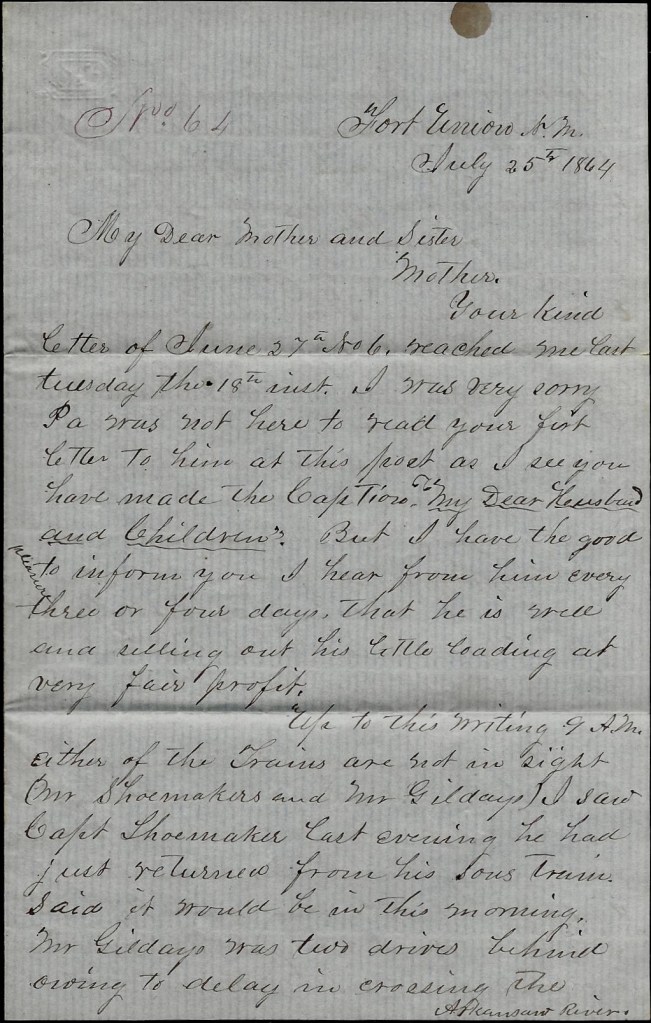 No. 64
Fort Union N. M.
July 25th 1864
My Dear Mother and Sister
Mother.
Your kind
letter of June 27th No 6. reached me last
tuesday the 18th inst. I was very sorry
Pa was not here to read your first
letter to him at this post as I see you
have made the Caption, "My Dear Husband
and Children". But I have the good
pleasure
to inform you I hear from him every
three or four days, that he is well
and selling out his little loading at
very fair profit.
Up to this writing 9 A.M.
either of the Trains are not in sight
(Mr Shoemakers and Mr Gildays) I saw
Capt Shoemaker last evening he had
just returned from his sons train.
Said it would be in this morning.
Mr Gildays was two drives behind
owing to delay in crossing the
Arkansaw River.